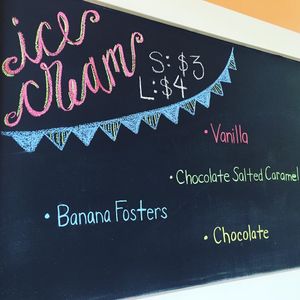 ice
cream
S: $3
L: $4
• Vanilla
• Chocolate Salted Caramel
• Banana Fosters
• Chocolate